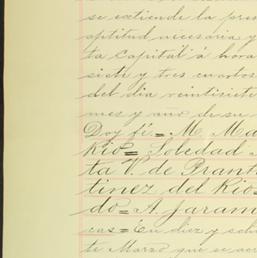 se extiende la pres
aptitud necesaria y
ta Capital á hora
siete y tres cuartos
del dia veintisiete
mes y año de su
Doy fé.= M. Ma
Rio= Soledad
ta V. de Prank
tinez del Rio
do= A. Jaram
cas= En diez y
te Marzo que se acer